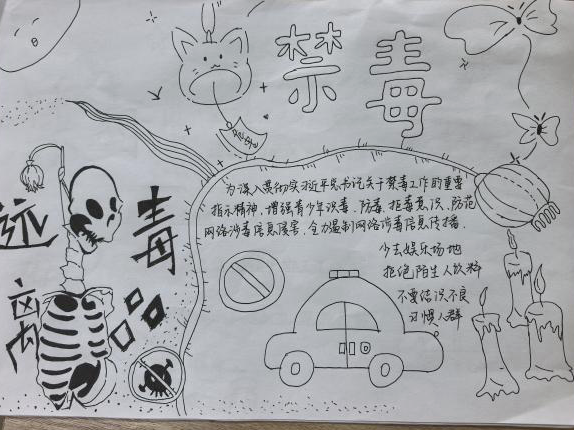 禁毒
远离
毒品
为深入贯彻习近平总书记关于禁毒工作的重要
指示精神,增强青少年识毒、防毒、拒毒意识、防范
网络涉毒信息侵害,全力遏制网络涉毒信息传播.
少去娱乐场地
拒绝陌生人饮料
不要结识不良
习惯人群